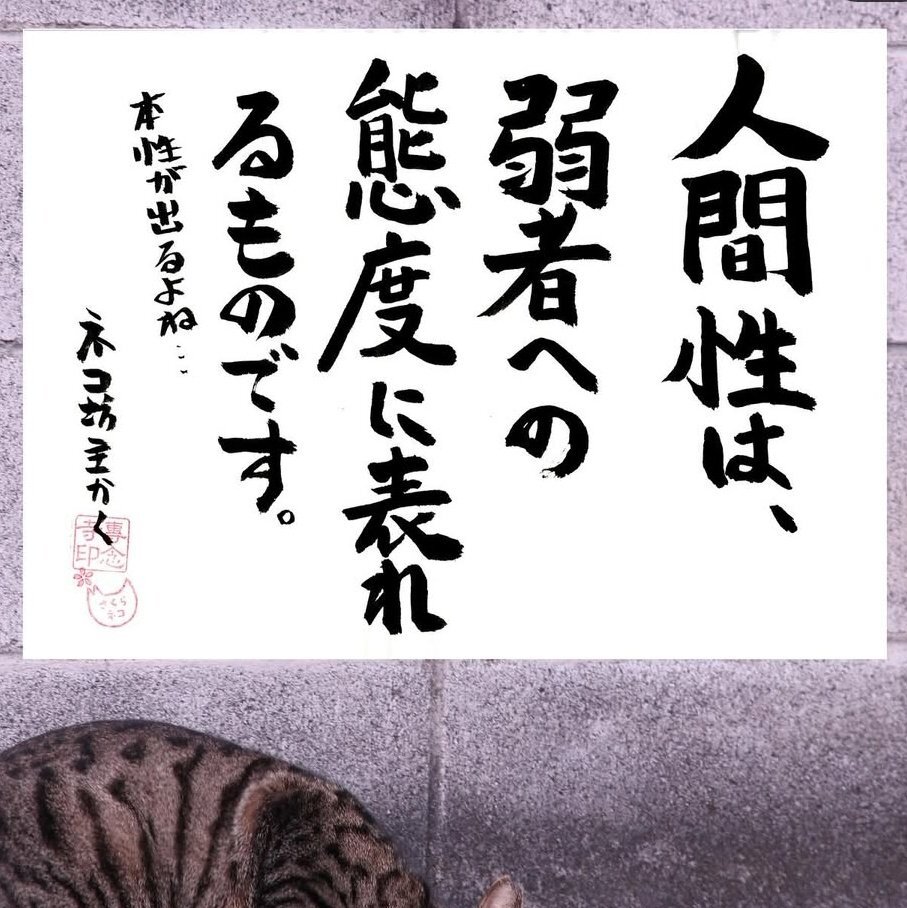 人間性は、
弱者への
態度に表れ
るものです。
本性が出るよね…
ネコ坊主かく
專念
寺印
さくら
ネコ